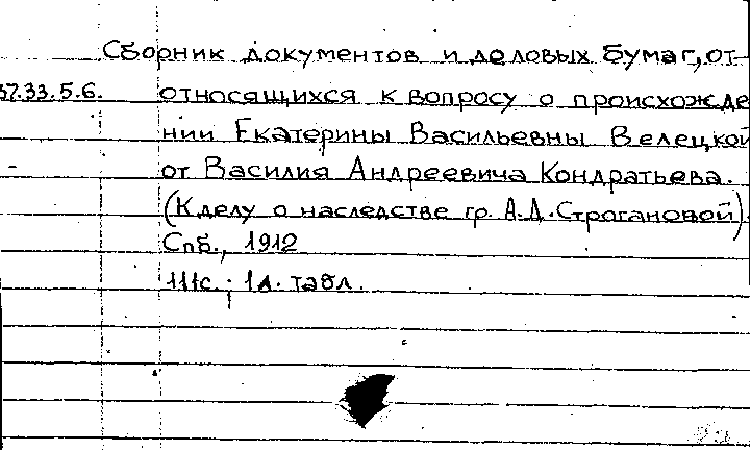 Сборник документов и деловых бумаг, от-
37.33.5.6. относящихся к вопросу о происхожде
нии Екатерины Васильевны Велецкой
от Василия Андреевича Кондратьева.
(К делу о наследстве гр. А.Д. Строгановой).
Спб., 1912
111с.; 1л. табл.